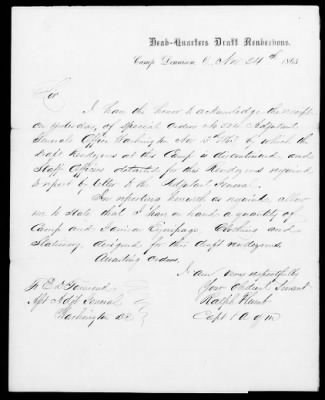 Head-Quarters Draft Rendezvous,
Camp Dennison, O. Nov 24th 1863
Sir
I have the honor to acknowledge the receipt
on yesterday of Special Orders No Adjutant
Generals Office Washington Nov 1863 by which the
draft Rendezvous at this Camp is discontinued, and
Staff Officers detailed for this Rendezvous required
to report by letter to the Adjutant General.
In reporting herewith as required, allow
me to state that I have on hand a quantity of
Camp and Garrison Equipage, Clothing and
Stationery, designed for this draft rendezvous.
Awaiting Orders,
I am very respectfully
Your Obedient Servant
Ralph
Capt & A Q M
To E D Townsend
Asst Adjt General
Washington DC